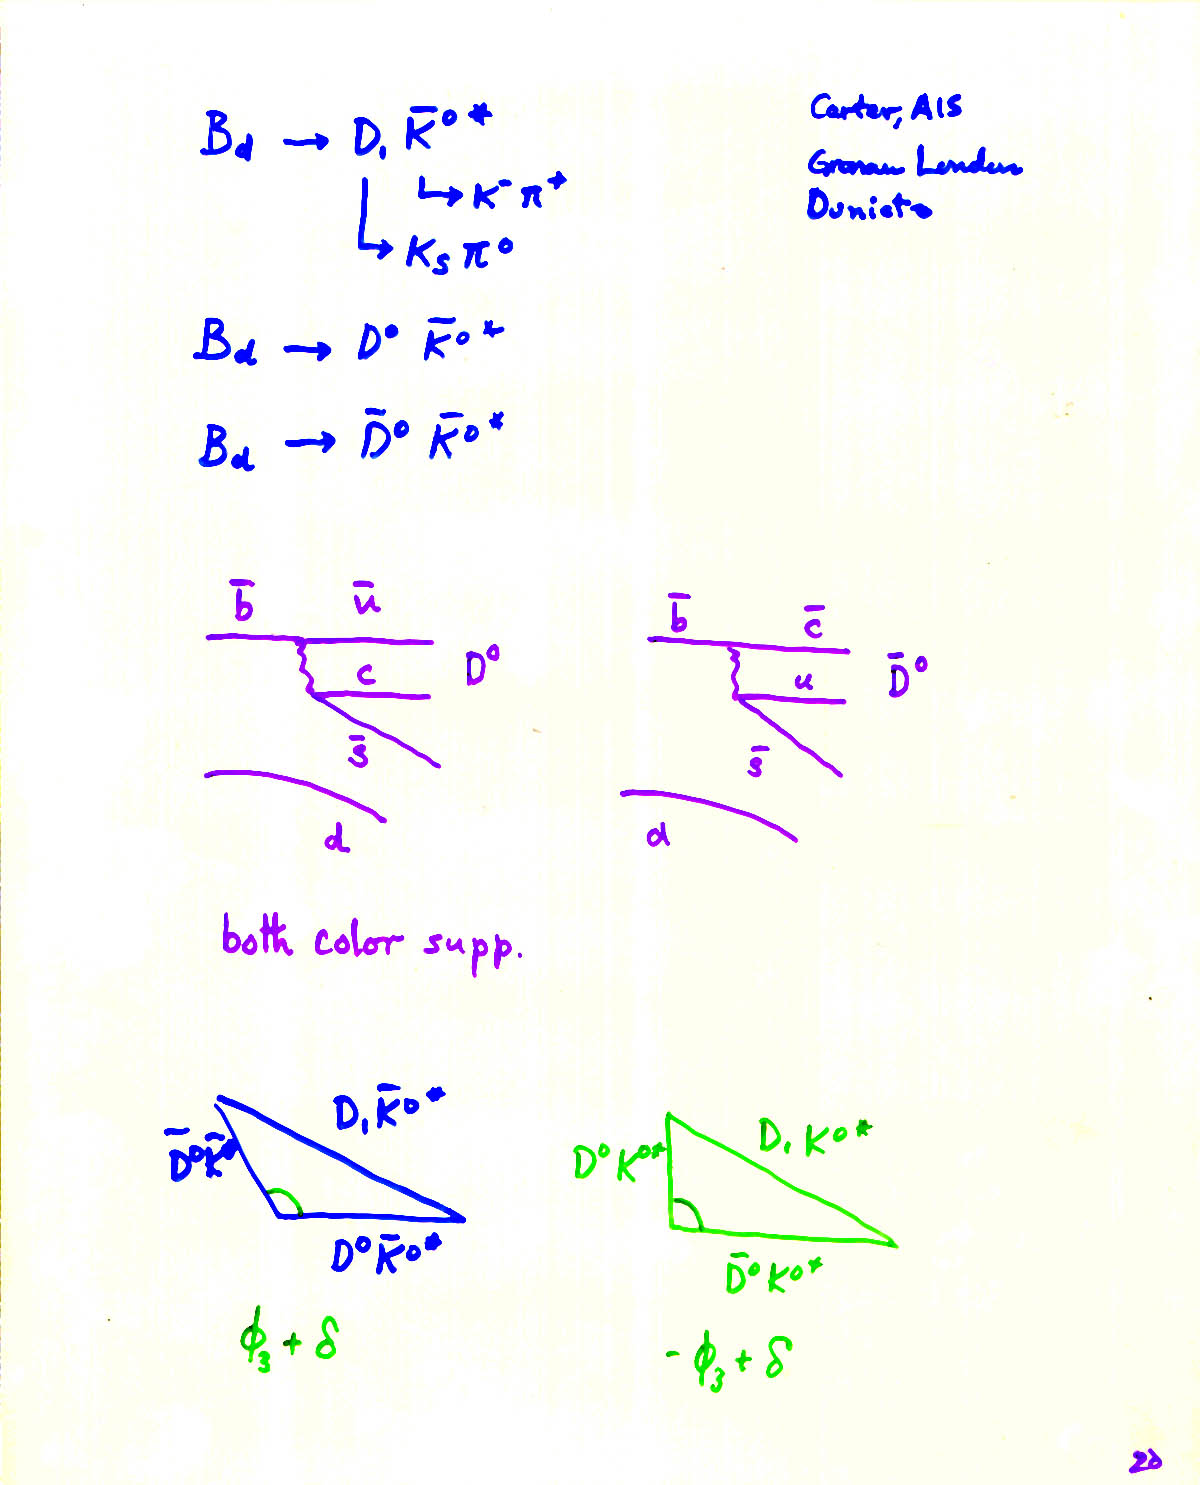 B_d → D₁ K̄⁰*
↳ K⁻ π⁺
↳ K_S π⁰
Carter, AIS
Gronau London
Dunietz
B_d → D⁰ K̄⁰*
B_d → D̄⁰ K̄⁰*
b̄ ū
c D⁰
s̄
d
b̄ c̄
u D̄⁰
s̄
d
both color supp.
D₁ K̄⁰*
D̄⁰ K̄⁰*
D⁰ K̄⁰*
ϕ₃ + δ
D₁ K⁰*
D⁰ K⁰*
D̄⁰ K⁰*
- ϕ₃ + δ